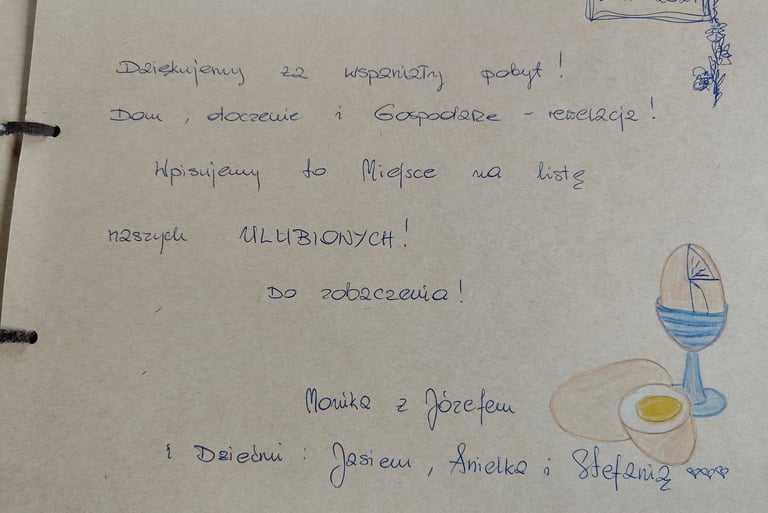 Dziękujemy za wspaniały pobyt!
Dom, otoczenie i Gospodarze - rewelacja!
Wpisujemy to Miejsce na listę
naszych ULUBIONYCH!
Do zobaczenia!
Monika z Józefem
i Dziećmi: Jasiem, Anielką i Stefanią